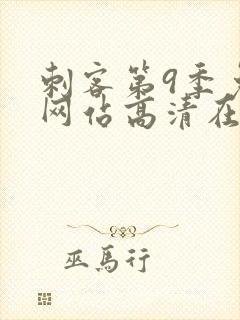 刺客第9季
网佔高清在
巫馬行